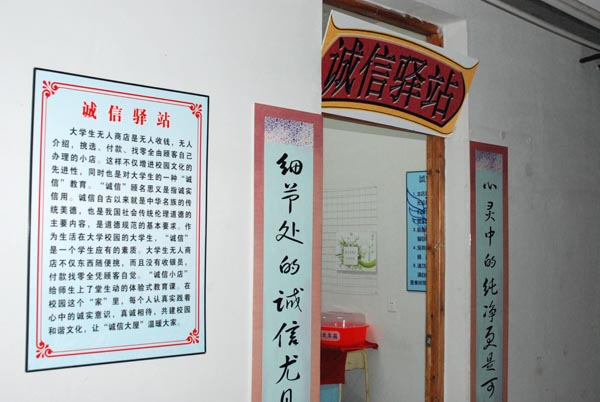 诚信驿站
大学生无人商店是无人收钱，无人
介绍，挑选、付款、找零全由顾客自己
办理的小店。这样不仅增进校园文化的
先进性，同时也是对大学生的一种“诚
信”教育。“诚信”顾名思义是指诚实
信用。诚信自古以来就是中华名族的传
统美德，也是我国社会传统伦理道德的
主要内容，是道德规范的基本要求。作
为生活在大学校园的大学生，“诚信”
是一个学生应有的素质。大学生无人商
店不仅东西随便挑，而且没有收银员，
付款找零全凭顾客自觉。“诚信小店”
给师生上了堂生动的体验式教育课。在
校园这个“家”里，每个人认真实践着
心中的诚实意识，真诚相待，共建校园
和谐文化，让“诚信大屋”温暖大家。
细节处的诚信尤
诚信驿站
心灵中的纯净更是可